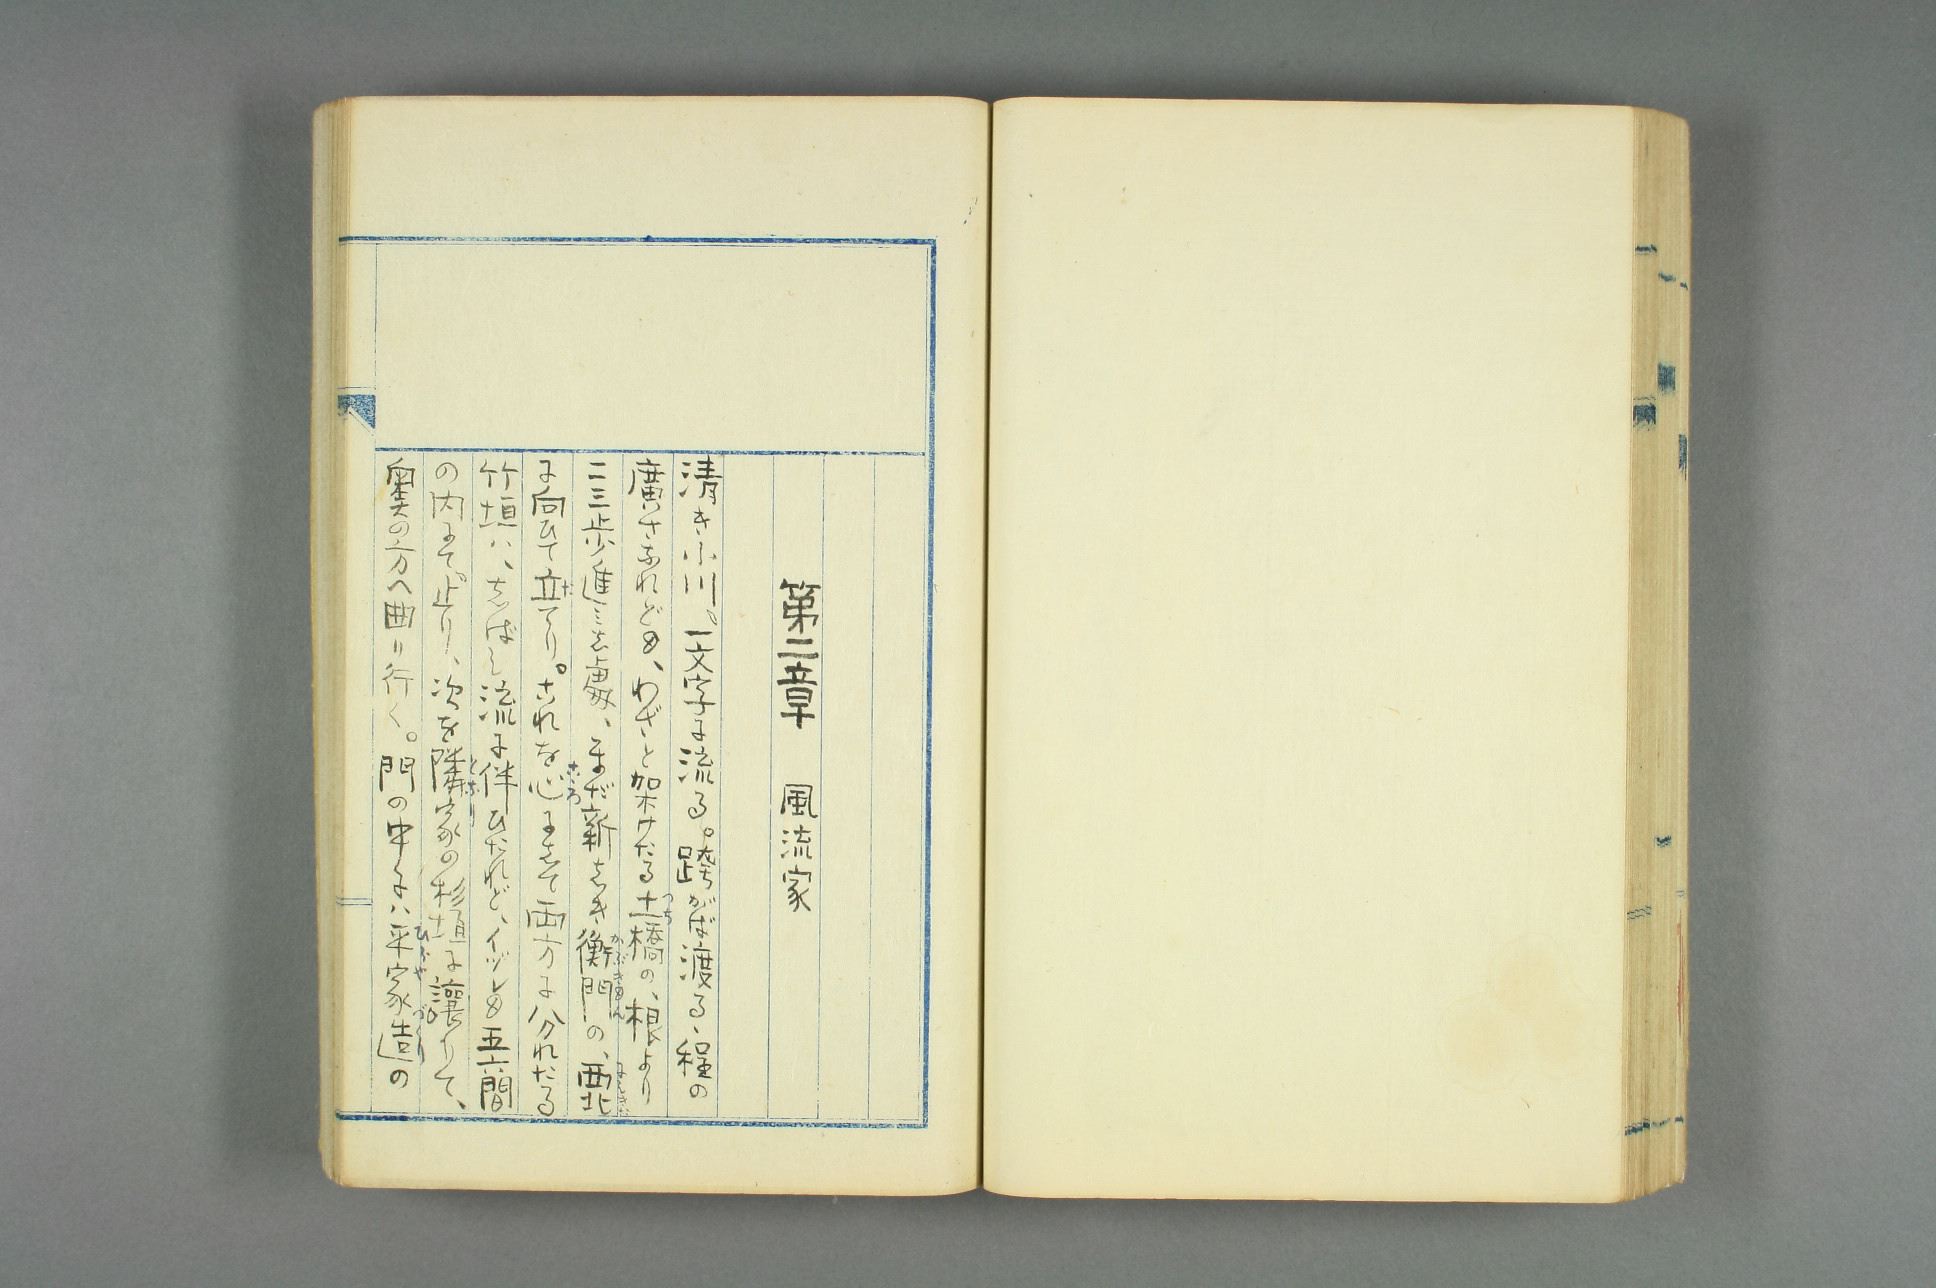 第二章 風流家
清き小川。一文字に流る。跨がば渡る、程の
廣さなれども、わざと架けたる土橋の、根より
二三歩進みし處、まだ新しき衡門の、西北
に向ひて立てり。これを心にして両方に分れたる
竹垣ハ、しばし流に伴ひたれど、イヅレも五六間
の内にて。止り、次を隣家の杉垣に讓りて、
奥の方へ曲り行く。門の中にハ平家造の